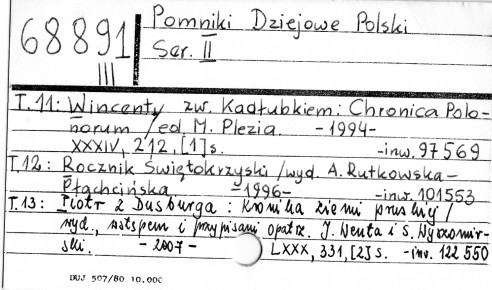 68891
III
Pomniki Dziejowe Polski
Ser. II
T. 11: Wincenty zw. Kadłubkiem: Chronica Polo-
norum / ed. M. Plezia. -1994-
XXXIV, 212, [1] s. -inw. 97569
T. 12: Rocznik Świętokrzyski / wyd. A. Rutkowska-
Płachcińska. -1996- -inw. 101553
T. 13: Piotr z Dusburga: Kronika ziemi pruskiej /
wyd., wstępem i przypisami opatrz. J. Wenta i S. Wyszomir-
ski. -2007- LXXX, 331, [2] s. -inw. 122 550
DUJ 507/80 10.000